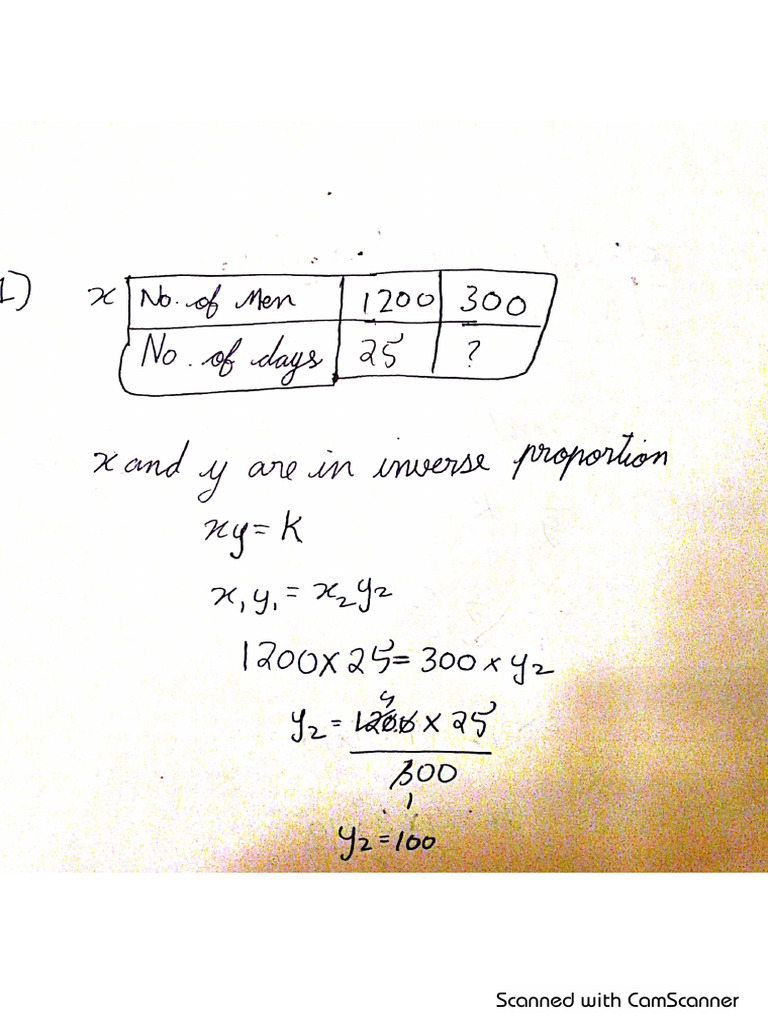 1)
x No. of Men 1200 300
No. of days 25 ?
x and y are in inverse proportion
xy = K
x₁y₁ = x₂y₂
1200 × 25 = 300 × y₂
4
y₂ = 1200 × 25
300
1
y₂ = 100
Scanned with CamScanner